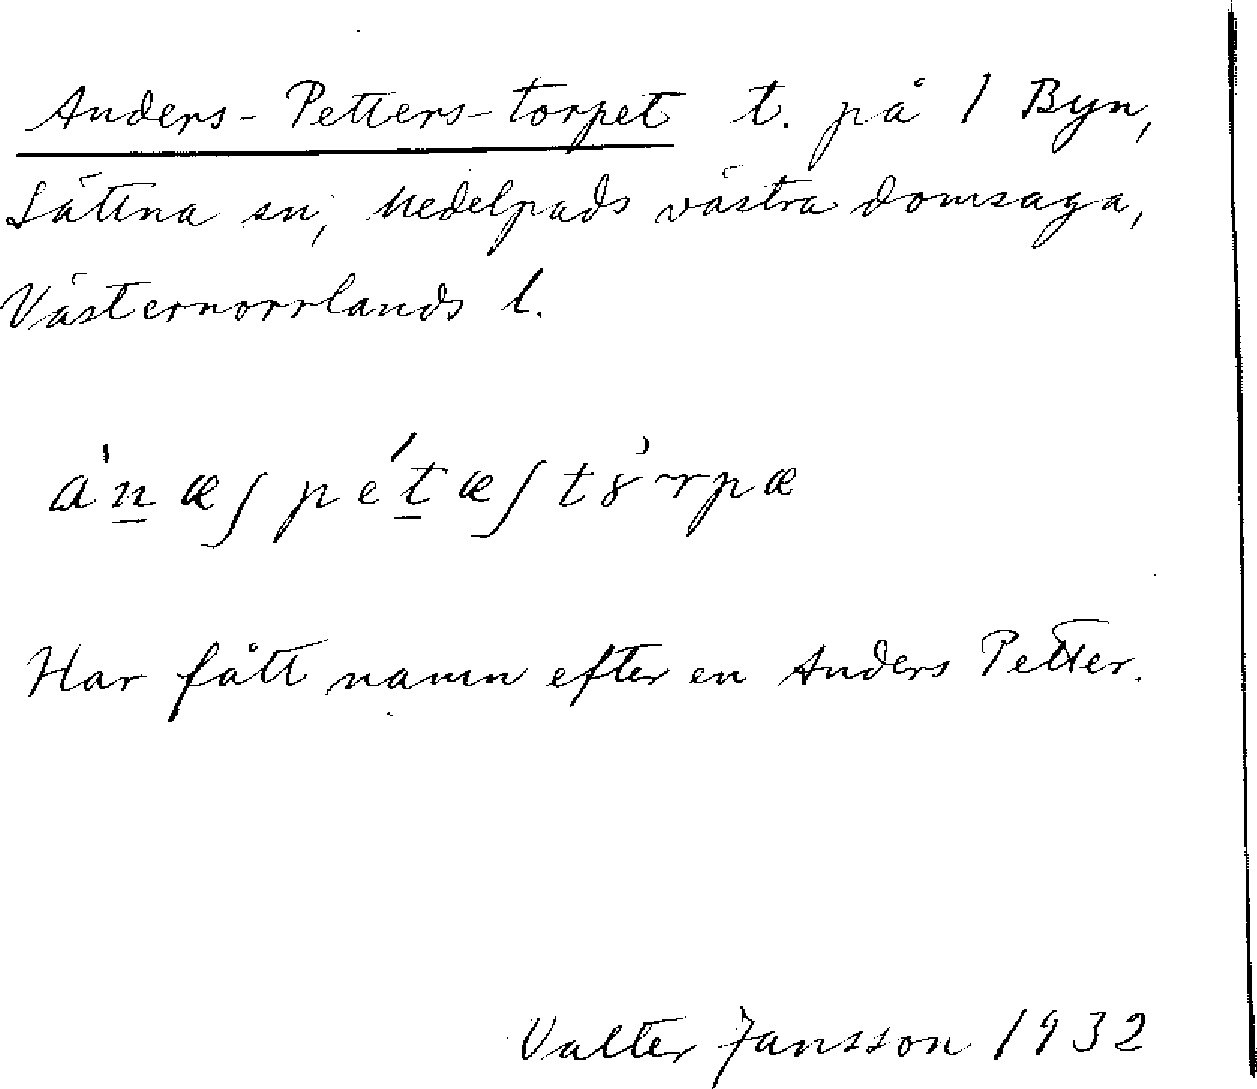 Anders-Petters-torpet t. på 1 Byn,
Sättna sn, Medelpads västra domsaga,
Västernorrlands l.
a̍n̲æʃ pét̲æʃ tȣ̀rpæ
Har fått namn efter en Anders Petter.
Valter Jansson 1932